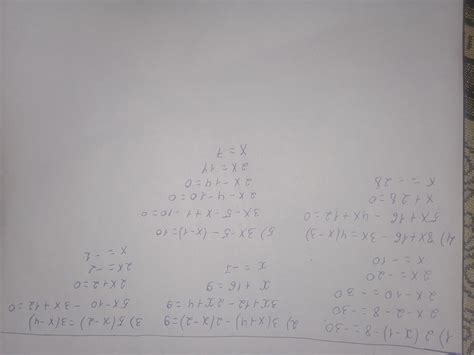 1) 2(x-1)-8=-30
2x-2-8=-30
2x-10=-30
2x=-20
x=-10
4) 8x+16-3x=4(x-3)
5x+16-4x+12=0
x+28=0
x=-28
2) 3(x+4)-2(x-2)=9
3x+12-2x+4=9
x+16=9
x=-7
5) 3x-5-(x-1)=10
3x-5-x+1-10=0
2x-4-10=0
2x-14=0
2x=14
x=7
3) 5(x-2)=3(x-4)
5x-10-3x+12=0
2x+2=0
2x=-2
x=-1